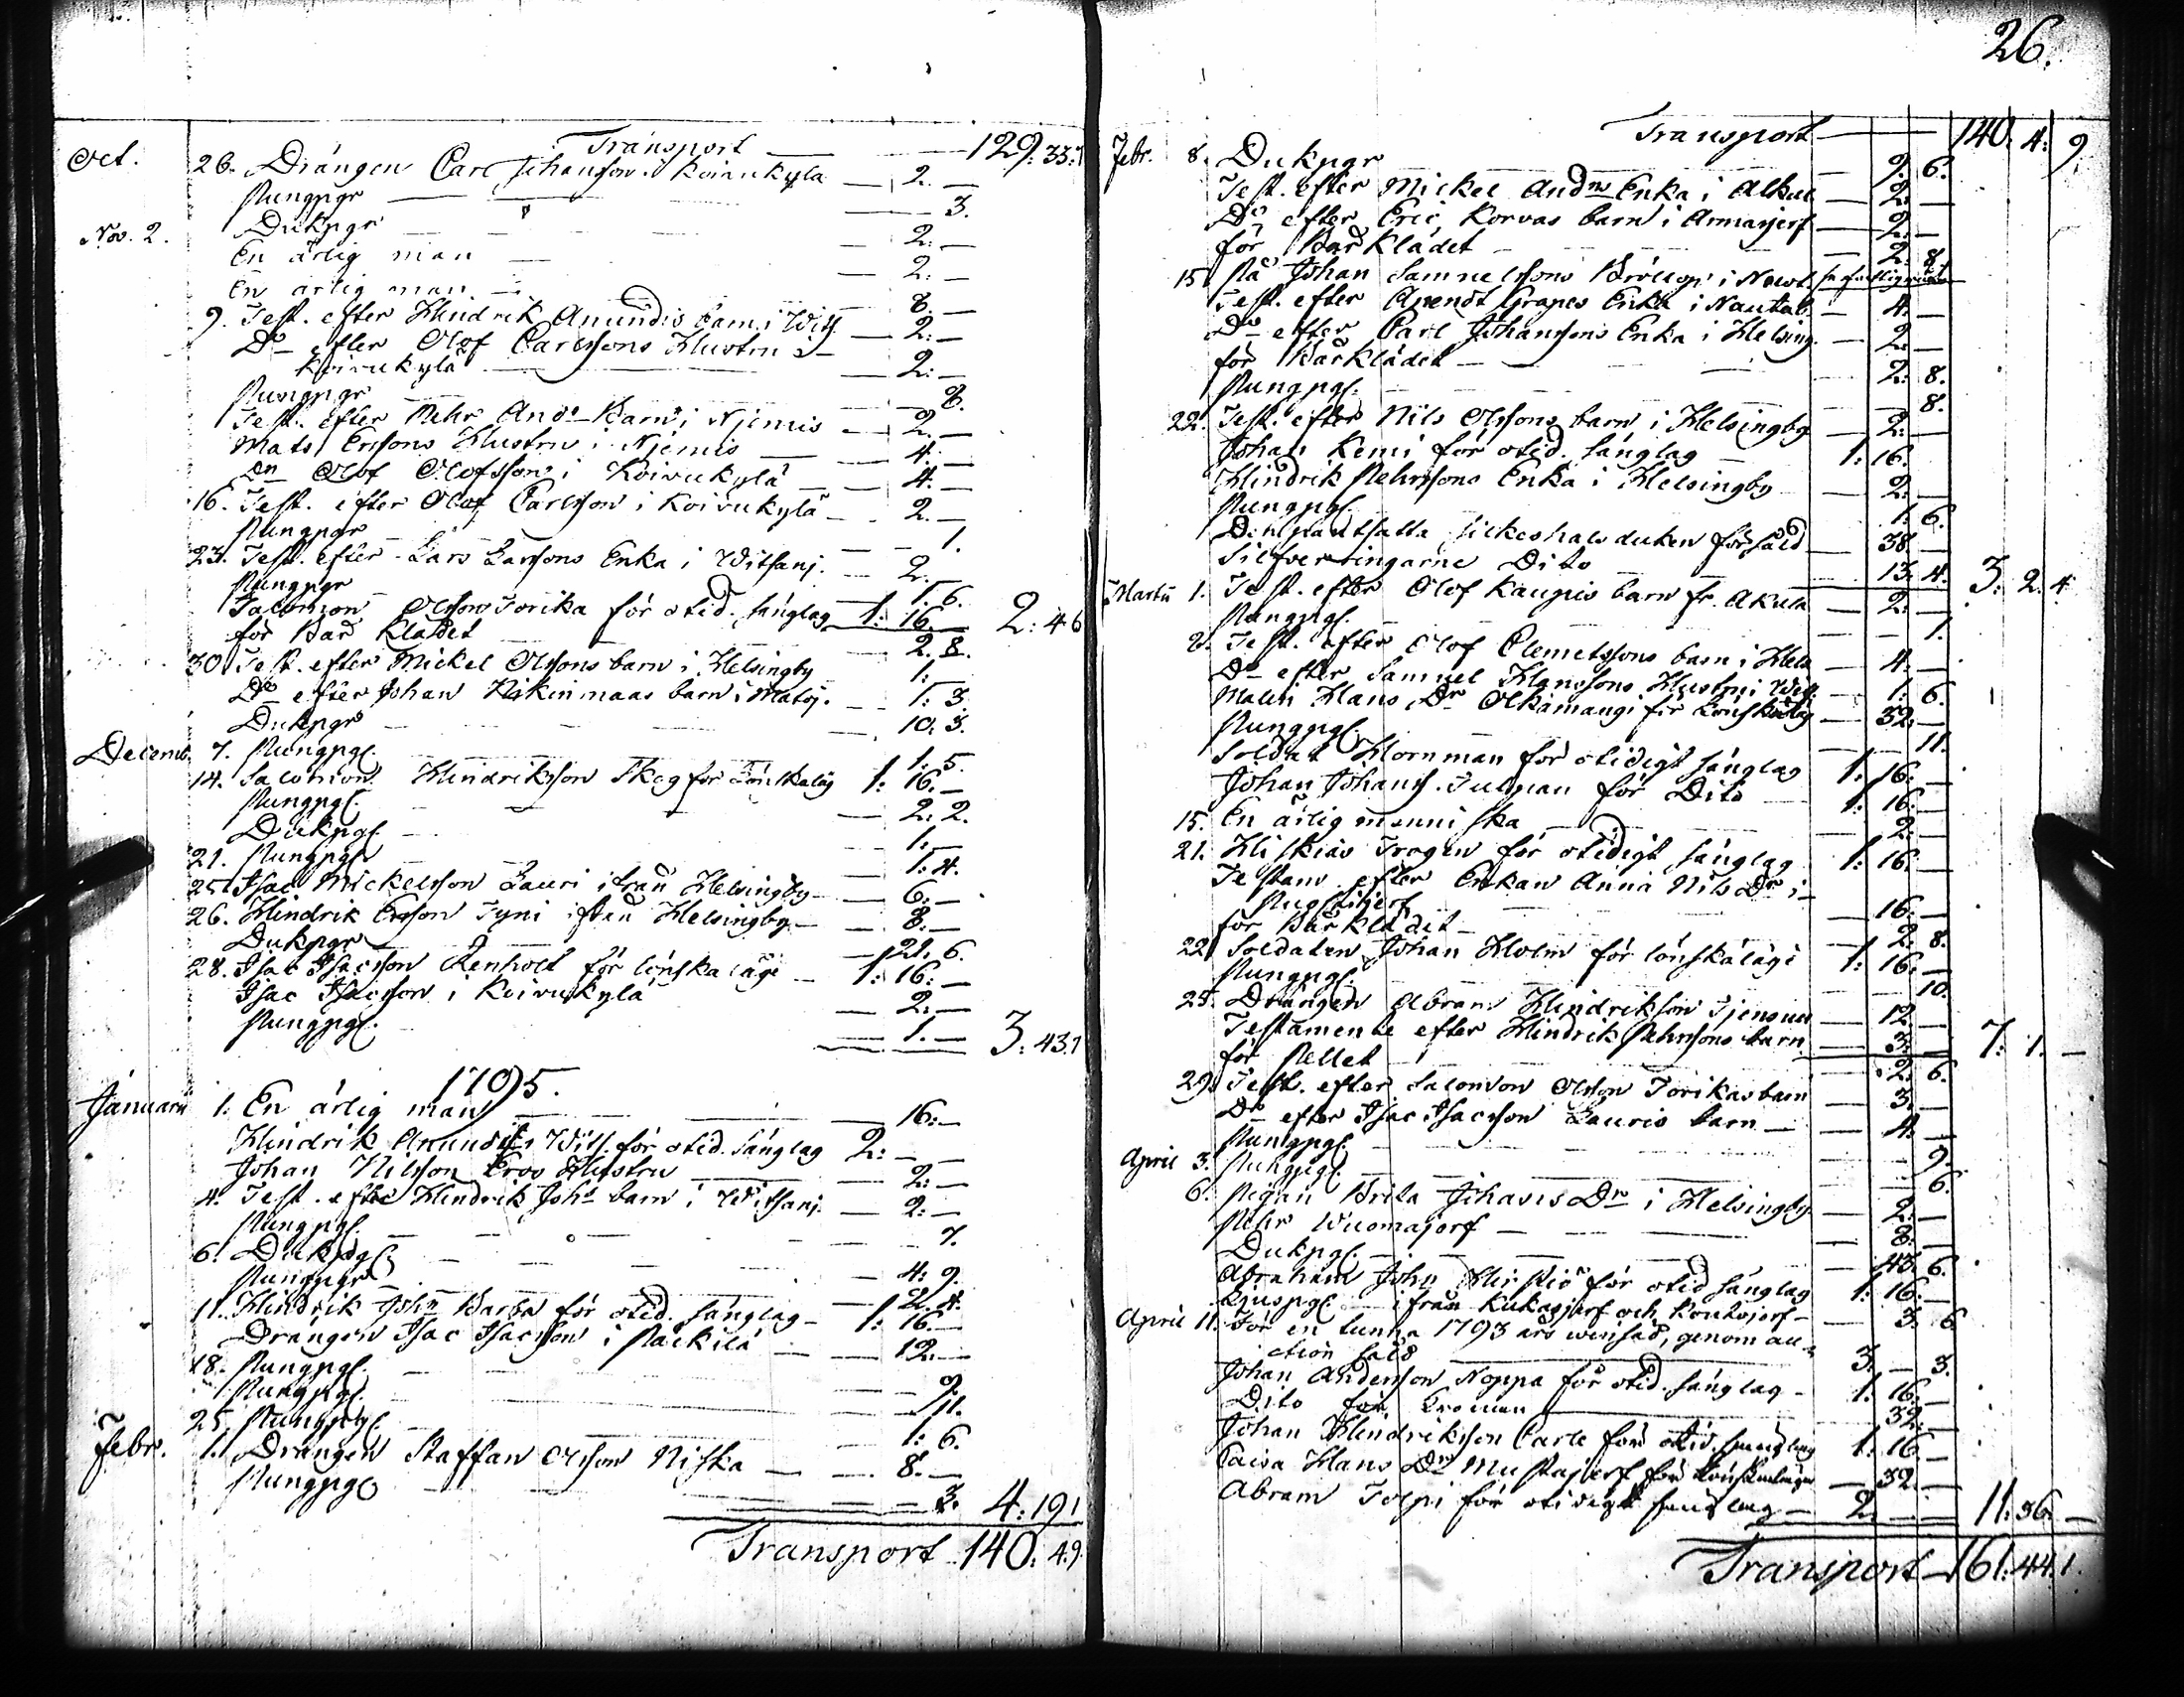 Transport — 129: 33:
Oct. 26. Drängen Carl Johansson. Koivukylä — 2. —
Pungpgr — 3.
Nov. 2. Dukpgr — 2: —
En ärlig man — 2: —
En ärlig man — 8: —
9. Test. efter Hindrik Anundis barn i Wits. — 2: —
Do efter Olof Carlssons Hustru i
Koivukylä — 2: —
Pungpgr — 8.
Test. efter Pehr Ands Barn i Njemis — 2. —
Mats Erssons Hustru i Njemis — 4. —
Dn Olof Olofsson i Koivukylä — 4. —
16. Test. efter Olof Carlsson i Koivukylä — 2. —
Pungpgr — 1.
23. Test. efter Lars Larssons Enka i Witsanj. — 2. —
Pungpgr — 1. 6.
Salomon Olsson Torika för otid. sänglag 1: 16. — 2: 46
för Bår Klädet — 2. 8.
30. Test. efter Mickel Olssons barn i Helsingby 1: —
Do efter Johan Niskinmaas barn i Matoj. — 1: 3.
Dukpgr — 10: 3.
Decemb. 7. Pungpgl. — 1: 5.
14. Salomon Hindriksson Skog för Lönskaläg 1: 16. —
Pungpgl. — 2: 2.
Dukpgl. — 1. —
21. Pungpgr — 1: 4.
25. Isac Mickelsson Lauri ifrån Helsingby — 6. —
26. Hindrik Ersson Tyni ifrån Helsingby — 8. —
Dukpgr — 21. 6.
28. Isac Isacsson Renholt för lönska läge — 1: 16: —
Isac Isacsson i Koivukylä — 2. —
Pungpgl. — 1. — 3: 43.1
1795.
Januarii 1. En ärlig man — 16: —
Hindrik Anundis Wits. för otid. sänglag 2: — —
Johan Nilsson Eros Hustru — 2: —
4. Test. efter Hindrik Johs barn i Witsanj. — 2: —
Pungpgl. — 7.
6. Dukpgl. — 4: 9.
Pungpgr — 2. 4.
11. Hindrik Johs Barba för otid. sänglag — 1: 16. —
Drängen Isac Isacsson i Päckilä — 12. —
18. Pungpgl. — 9.
Pungpgl. — 11.
25. Pungpgl. — 1: 6.
Febr. 1. Drängen Staffan Olsson Niska — 8. —
Pungpgl — 3. 4: 19 1
Transport 140: 4.9.
26.
Transport — 140: 4: 9.
Febr. 8. Dukpgr — 9. 6.
Test. efter Mickel Andrs Enka i Alkul — 2. —
Do efter Eric Korvas barn i Armasjerf — 2. —
för Bårklädet — 2. 8.
15. på Johan Samuelssons Bröllop i Naut.
Test. efter Arendt Grapes Enka i Nautab. — 4. —
Do efter Carl Johanssons Enka i Helsing. — 2. —
för Bårklädet — 2. 8.
Pungpgl. — 8.
22. Test. efter Nils Olssons barn i Helsingby — 2: —
Johan Kemi för otid. sänglag — 1: 16.
Hindrik Pehrssons Enka i Helsingby — 2. —
Pungpgl. — 1. 6.
silkeshals duken försåld — 38. —
Silfver ringarne Dito — 13. 4. 3: 2. 4.
Martii 1. Test. efter Olof Kaupis barn fr. Akula — 2. —
Pungpgl. — 1.
Test. efter Olof Clemetssons barn i Hels — 4. —
Do efter Samuel Hanssons Hustru i Wits. — 1: 6.
Malin Hans Dr Olkamangi för Lönskaläg — 32. —
Pungpgl. — 11.
Soldat Hornman för otidigt sänglag 1: 16. —
Johan Johanss. Julpan för Dito — 1: 16: —
15. En ärlig menniska — 2. —
21. Hiskias Trogen för otidigt sänglag 1: 16. —
Testam. efter Enkan Anna Nils Dr i
— 16. —
för Bårklädet — 2. 8.
22. Soldaten Johan Holm för lönskaläge 1: 16. —
Pungpgl. — 10.
25. Drängen Abram Hindriksson Tjensuu — 12. —
Testamente efter Hindrik Pehrssons barn — 3. — 7: 1. —
för Pellet — 2. 6.
29. Test. efter Salomon Olsson Torikas barn — 3. —
Do efter Isac Isacsson Lauris barn — 4. —
Pungpgl. — 9.
April 3. Pungpgl. — 6.
6. Pigan Brita Johans Dr i Helsingby — 2. —
Pehr Wuomajerf — 8. —
Dukpgl. — 43. 6.
Abraham Johs Hirstiö för otid sänglag 1: 16. —
Ljuspgl. ifrån Kukasjerf och Koutojerf — 3. 6.
April 11. För en tunna 1793 års , genom au-
ction såld — 3. — 3.
Johan Andersson Noppa för otid. sänglag 1: 16. —
Dito för — 32. —
Johan Hindriksson Carle för otid. sänglag 1: 16 —
Caisa Hans Dr Mustajerf för Lönskaläge — 32. —
Abram Tolpi för otidigt sänglag — 2. — — 11: 36. —
Transport — 161: 44. 1.